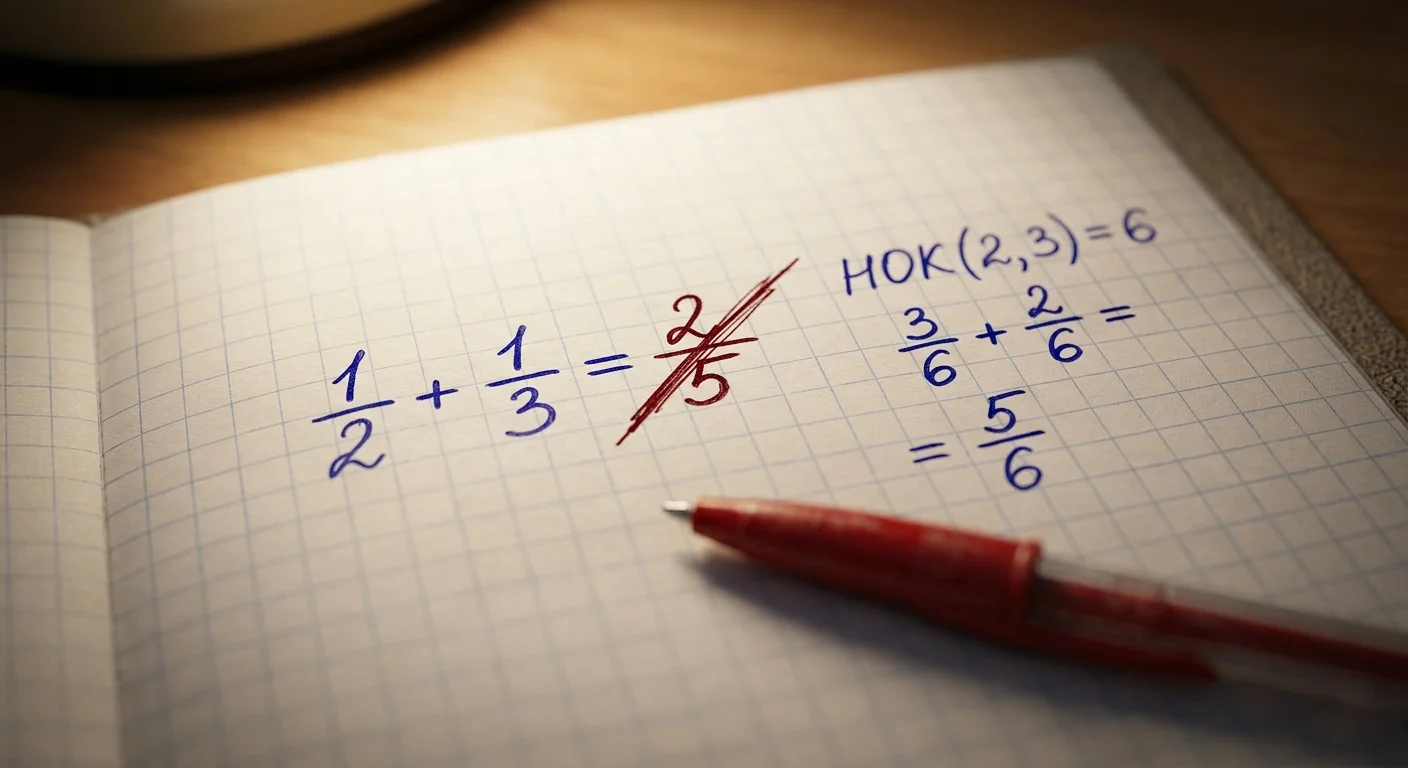 1/2 + 1/3 = 2/5
НОК(2,3)=6
3/6 + 2/6 =
= 5/6